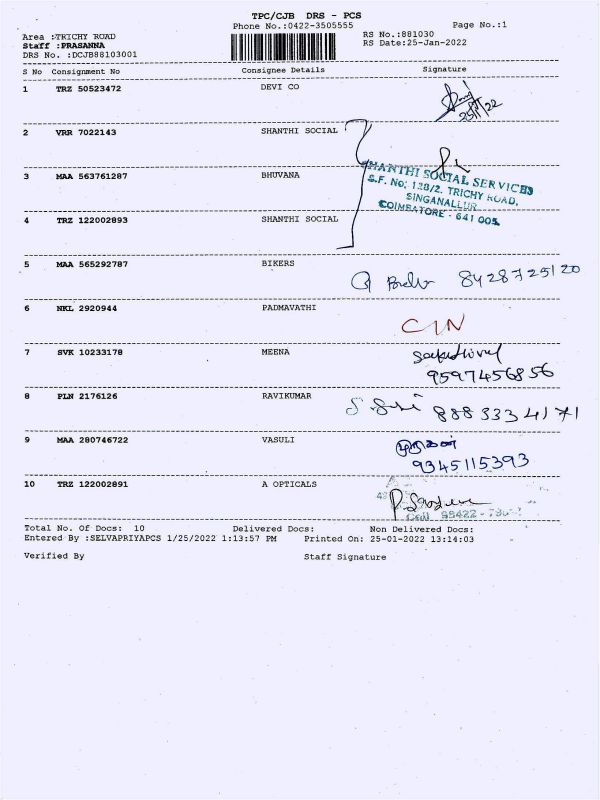 TPC/CJB DRS - PCS
Phone No.:0422-3505555
Page No.:1
Area :TRICHY ROAD
RS No.:881030
Staff :PRASANNA
RS Date:25-Jan-2022
DRS No. :DCJB88103001
S No Consignment No Consignee Details Signature
1 TRZ 50523472 DEVI CO
25/1/22
2 VRR 7022143 SHANTHI SOCIAL
3 MAA 563761287 BHUVANA
SHANTHI SOCIAL SERVICES
S.F. No; 128/2. TRICHY ROAD,
SINGANALLUR
COIMBATORE - 641 005.
4 TRZ 122002893 SHANTHI SOCIAL
5 MAA 565292787 BIKERS
8428725120
6 NKL 2920944 PADMAVATHI
7 SVK 10233178 MEENA
9597456856
8 PLN 2176126 RAVIKUMAR
8883334171
9 MAA 280746722 VASULI
9345115393
10 TRZ 122002891 A OPTICALS
Total No. Of Docs: 10 Delivered Docs: Non Delivered Docs:
Entered By :SELVAPRIYAPCS 1/25/2022 1:13:57 PM Printed On: 25-01-2022 13:14:03
Verified By Staff Signature